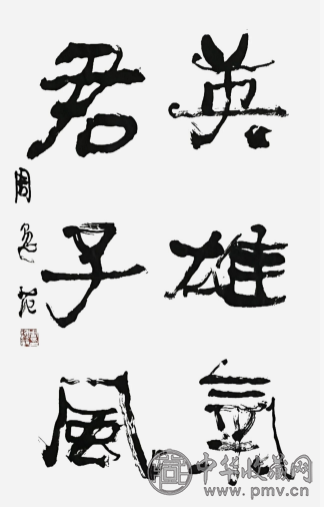 英雄氣
君子風
周逸范
中华收藏网
www.pmv.cn